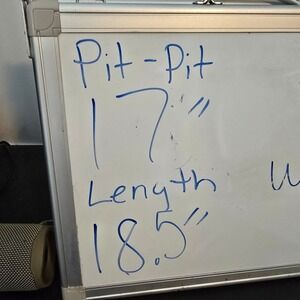 Pit-Pit
17"
Length
18.5"